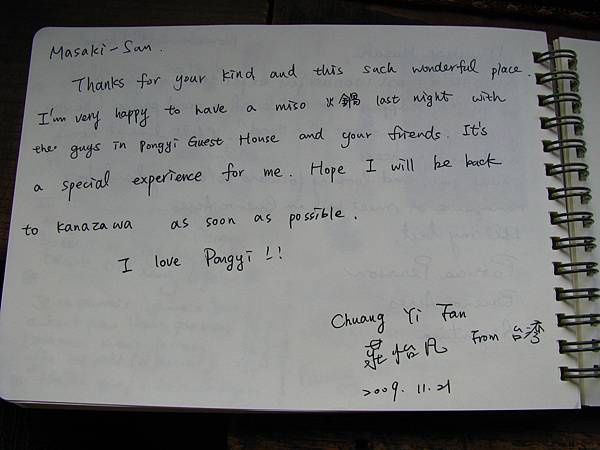 Masaki-San.
Thanks for your kind and this such wonderful place.
I'm very happy to have a miso 火鍋 last night with
the guys in Pongyi Guest House and your friends. It's
a special experience for me. Hope I will be back
to Kanazawa as soon as possible.
I love Pongyi!!
Chuang Yi Fan
怡凡 From 台灣
2009. 11. 21